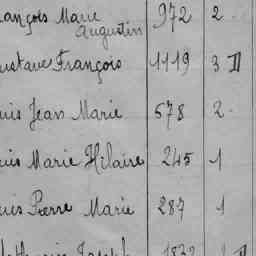 ançois Marie 972 2
Augustin
ustave François 1119 3 II
uis Jean Marie 578 2
uis Marie Hilaire 245 1
uis Pierre Marie 287 1
Joseph 1832 1 II